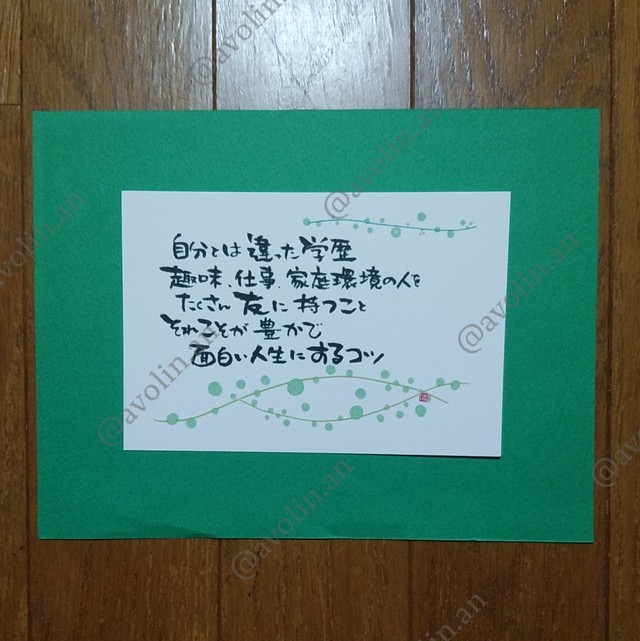 自分とは違った学歴
趣味、仕事、家庭環境の人を
たくさん友に持つこと
それこそが豊かで
面白い人生にするコツ
@avolin.an
@avolin.an
@avolin.an
@avolin.an
@avolin.an
@avolin.an
@avolin.an
@avolin.an